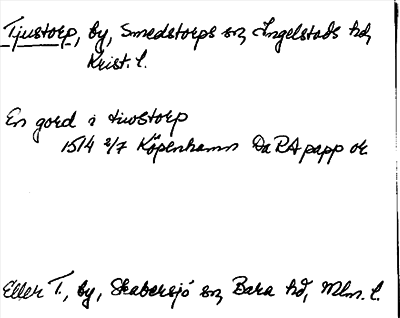 Tjustorp, by, Smedstorps sn, Ingelstads hd,
Krist. l.
En gord i tiwstorp
1514 2/7 Köpenhamn DaRA papp or.
Eller T., by, Skabersjö sn, Bara hd, Mlm. l.